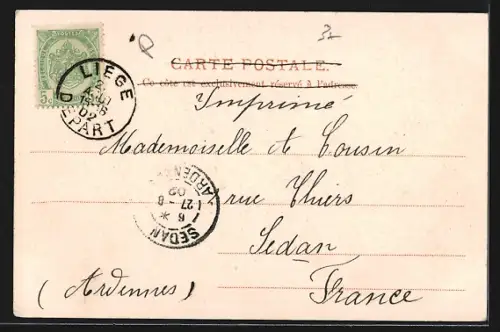 3-
CARTE POSTALE.
Ce côté est exclusivement réservé à l'adresse.
5c
LIEGE
DEPART
02
Imprimé
Mademoiselle de Cousin
rue Thiers
Sedan
(Ardennes)
France
SEDAN
ARDENNES
6
27 - 8
02